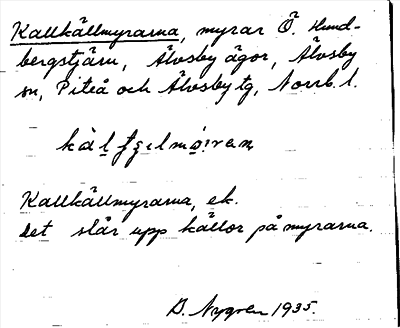 Kallkällmyrarna, myrar Ö. Hund-
bergstjärn, Älvsby ägor, Älvsby
sn, Piteå och Älvsby tg, Norrb. l.
Kallkällmyrarna, ek.
det slår upp källor på myrarna.
D. Nygren 1935.